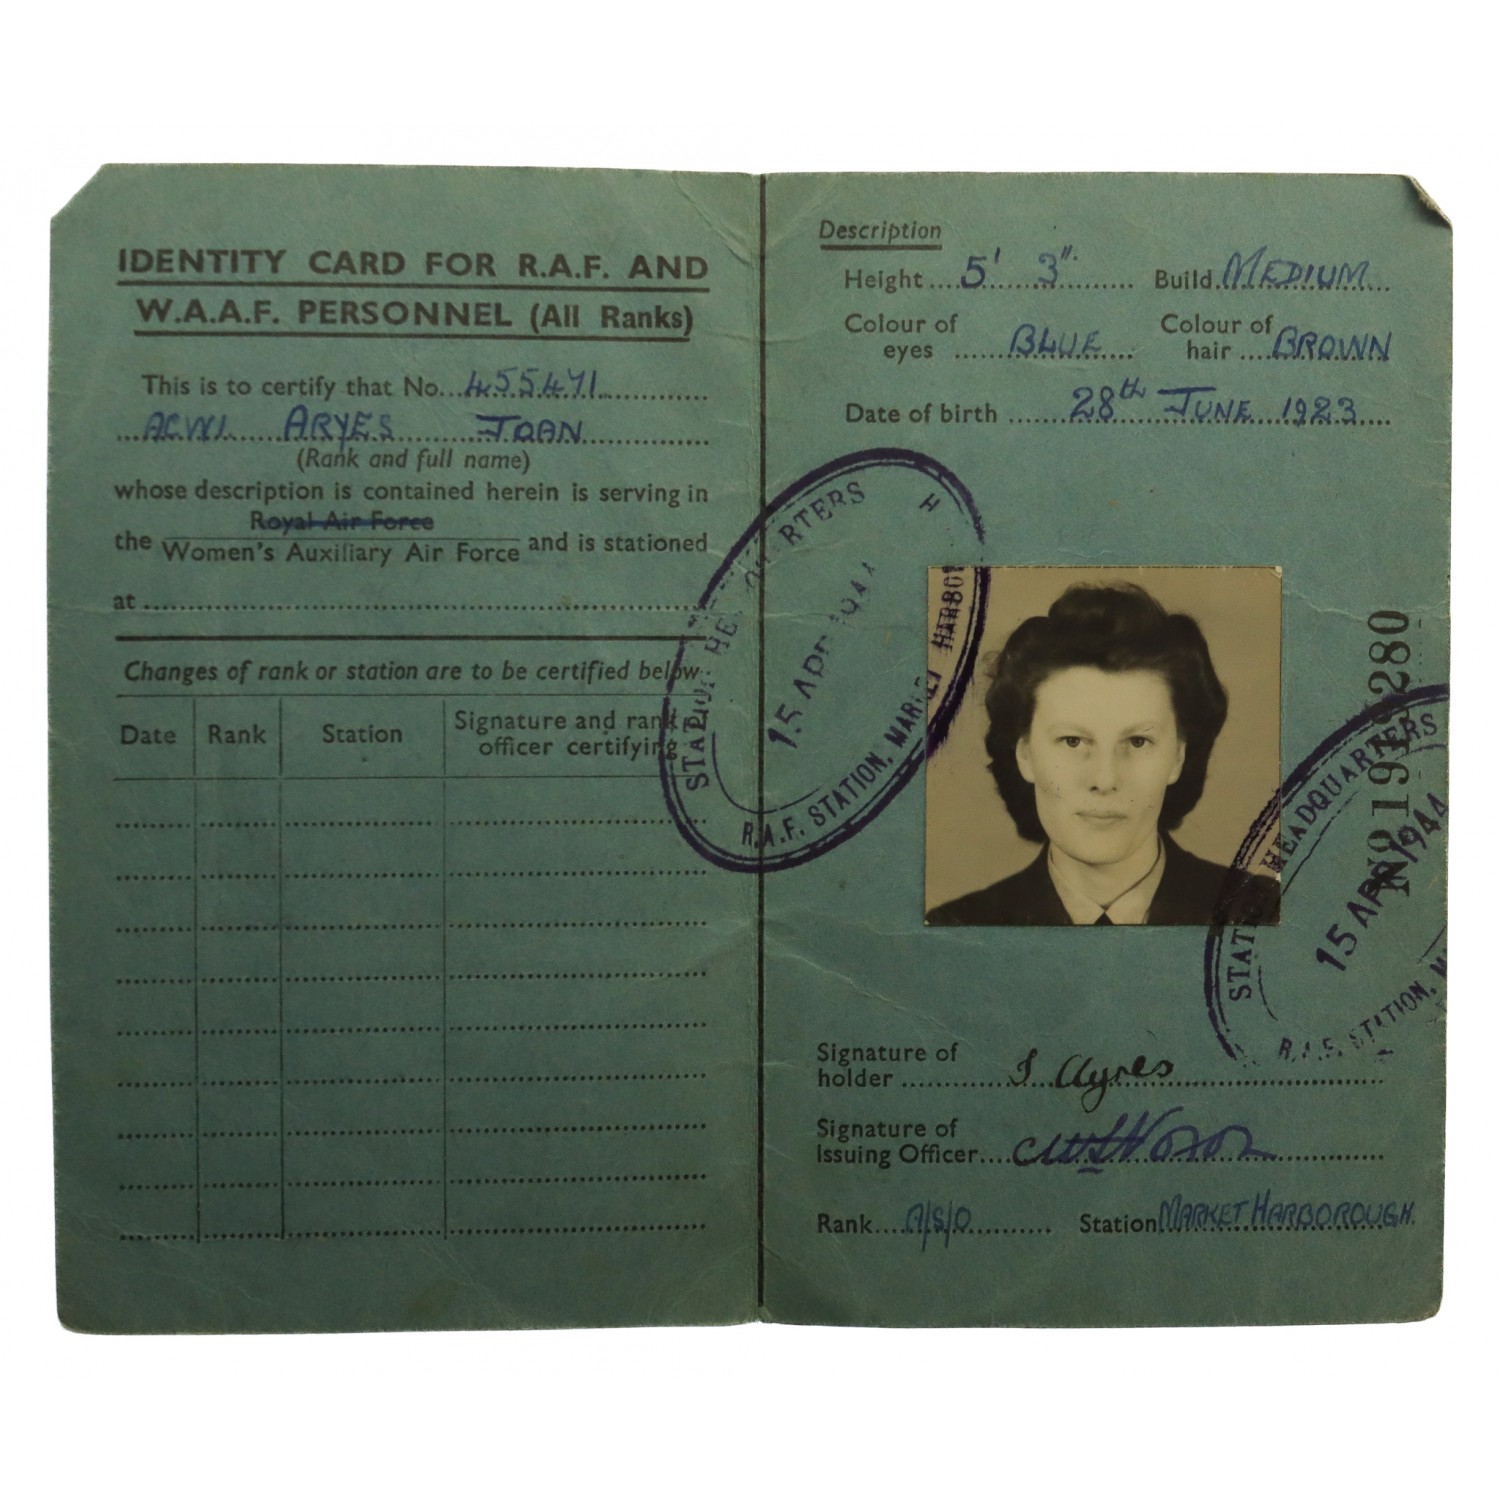 IDENTITY CARD FOR R.A.F. AND
W.A.A.F. PERSONNEL (All Ranks)
This is to certify that No. 455471
ACW1 ARYES JOAN
(Rank and full name)
whose description is contained herein is serving in
Royal Air Force
the Women's Auxiliary Air Force and is stationed
at
Changes of rank or station are to be certified below
Date Rank Station Signature and rank
officer certifying
Description
Height 5' 3" Build MEDIUM
Colour of Colour of
eyes BLUE hair BROWN
Date of birth 28th JUNE 1923
STATION HEADQUARTERS
15 APR 1944
R.A.F. STATION, MARKET HARBOR
STATION HEADQUARTERS
15 APR 1944
R.A.F. STATION, M
Signature of
holder J Ayres
Signature of
Issuing Officer
Rank A/S/O Station MARKET HARBOROUGH.